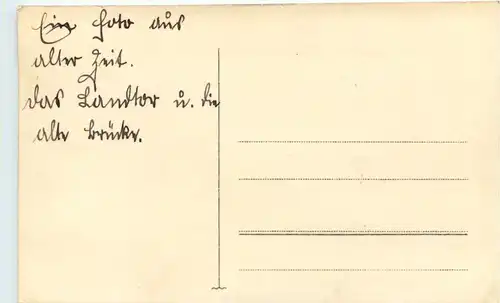 Ein Foto aus
alter Zeit.
Das Landtor u. die
alte Brücke.